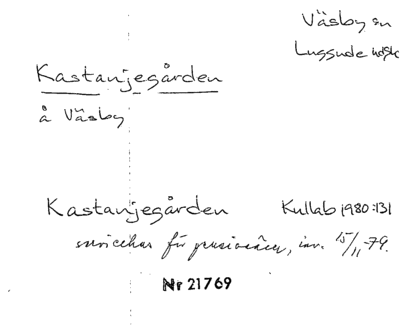 Väsby sn
Luggude hds
Kastanjegården
å Väsby
Kastanjegården Kullab 1980:131
servicehus för pensionärer, inv. 15/11-79.
Nr 21769